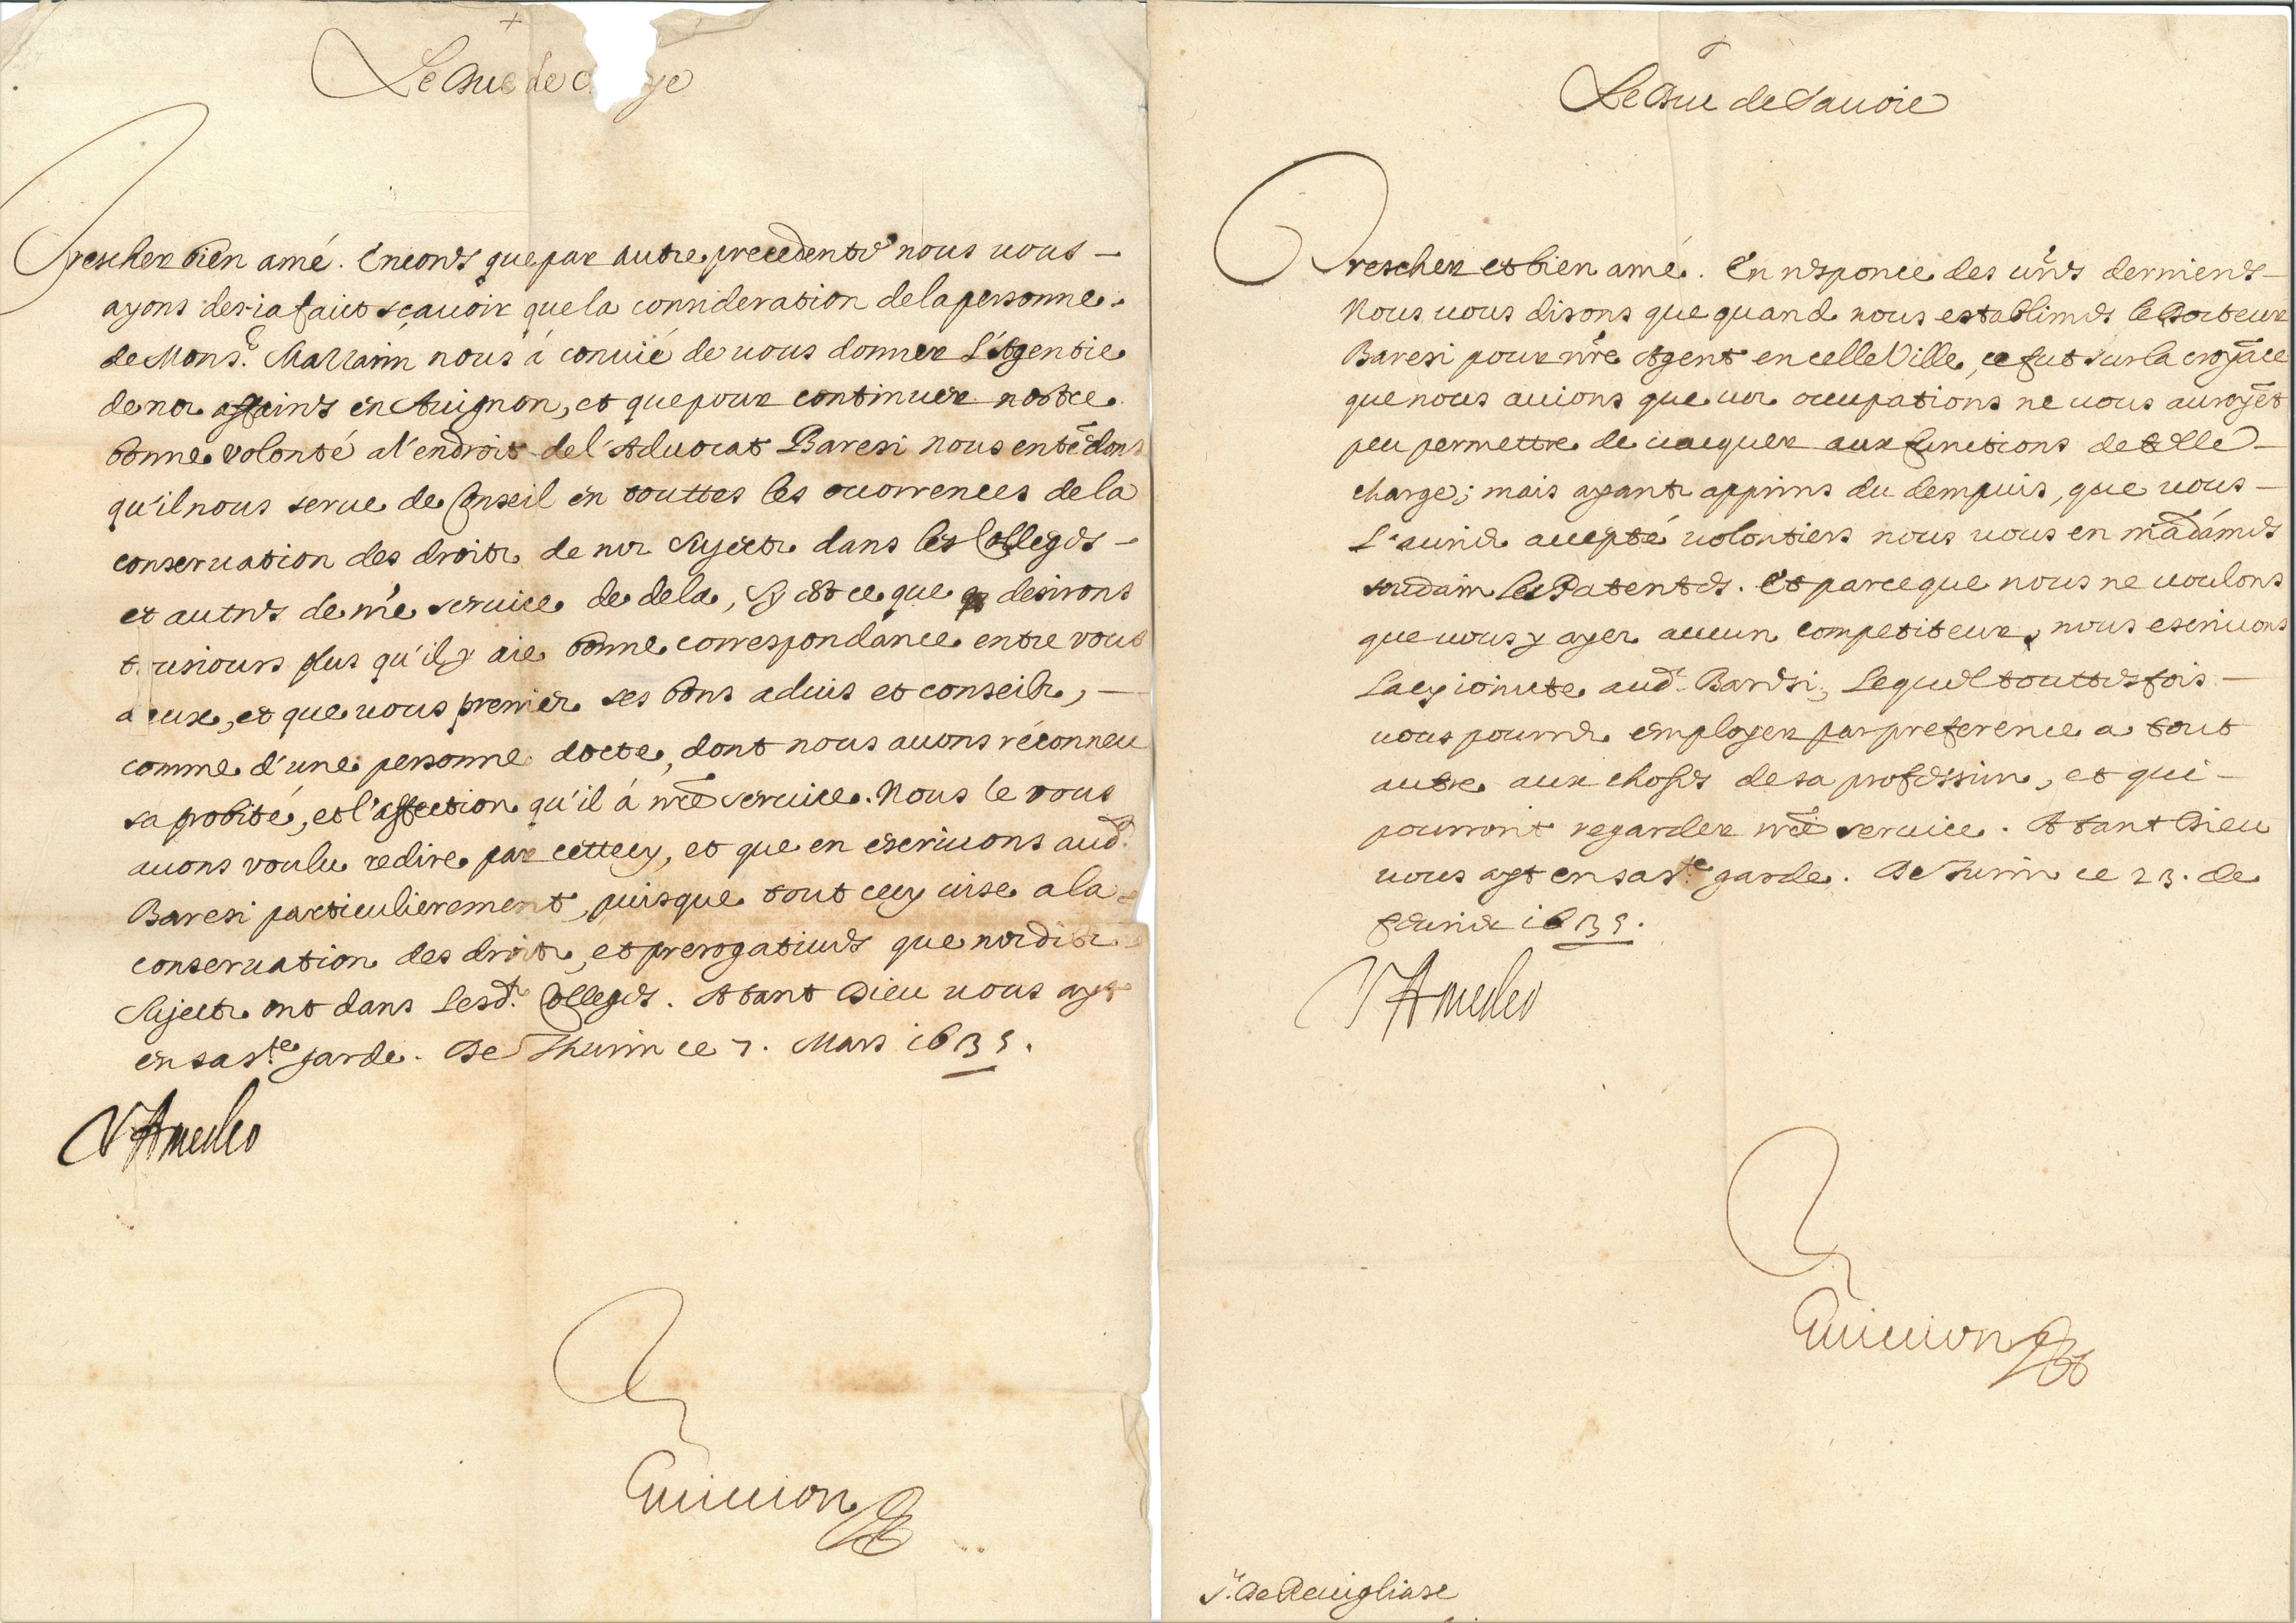 Le Duc de ye
Trescher bien amé. Encores que par autre precedente nous vous
ayons des-ia faict sçavoir que la consideration de la personne
de Mons.r Mazzarin nous á convié de vous donner l'Agentie
de noz affaires en Avignon, et que pour continuer nostre
bonne volonté a l'endroit de l'Advocat Baresi nous entēdons
qu'il nous serve de Conseil en touttes les ocorrences de la
conservation des droitz de noz Sujectz dans les Colleges
et autres de nr̄e service de dela, Sy est ce que desirons
tousiours plus qu'il y aie bonne correspondance entre vous
deux, et que vous preniez ses bons advis et conseilz,
comme d'une personne docte, dont nous avons réconneu
sa probité, et l'affection qu'il á nr̄e service. Nous le vous
avons voulu redire par cettecy, et que en escrivons aud.t
Baresi particulierement, puisque tout cecy vise a la
conservation des droitz, et prerogatives que nosditz
Sujectz ont dans lesd.tz Colleges. A tant Dieu vous ayt
en sa s.te garde. De Thurin ce 7. Mars 1635.
V Amedeo
Le Duc de Savoie
Trescher et bien amé. En responce des vr̄es dernieres
Nous vous disons que quand nous establimes le Docteur
Baresi pour nr̄e Agent en celle Ville, ce fut sur la croyāce
que nous avions que voz occupations ne vous auroyēt
peu permettre de vacquer aux functions de telle
charge; mais ayantz apprins du dempuis, que vous
l'auriez accepté volontiers nous vous en mādāmes
soudain les Patentes. Et parceque nous ne voulons
que vous y ayez aucun competiteur, nous escrivons
la cy ioincte aud.t Baresi, lequel touttesfois
vous pourrez employer par preference a tout
autre aux choses de sa profession, et qui
pourront regarder nr̄e service. A tant Dieu
vous ayt en sa s.te garde. De Turin ce 23. de
fevrier 1635.
V Amedeo